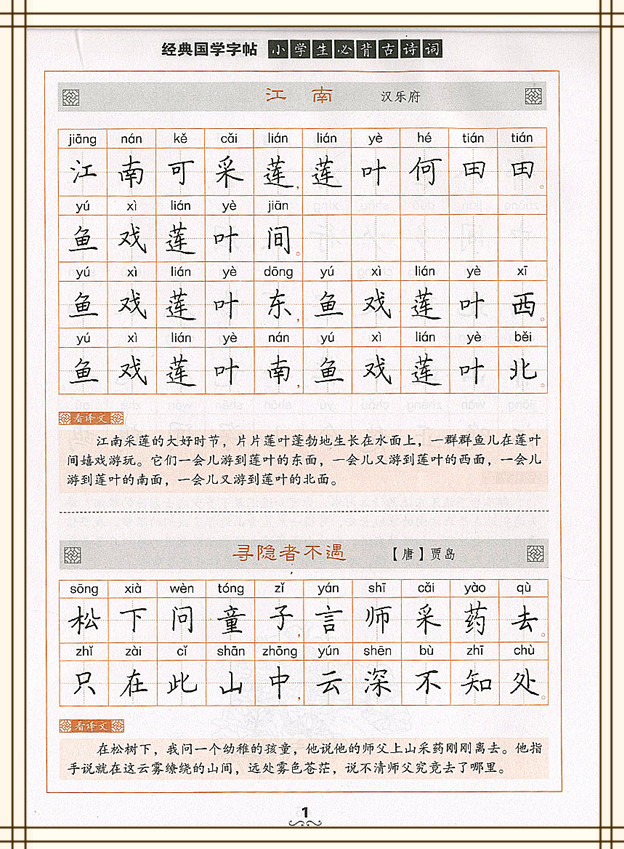 经典国学字帖 小学生必背古诗词
江 南 汉乐府
jiāng nán kě cǎi lián lián yè hé tián tián
江南可采莲，莲叶何田田。
yú xì lián yè jiān
鱼戏莲叶间。
yú xì lián yè dōng yú xì lián yè xī
鱼戏莲叶东，鱼戏莲叶西。
yú xì lián yè nán yú xì lián yè běi
鱼戏莲叶南，鱼戏莲叶北。
看译文
江南采莲的大好时节，片片莲叶蓬勃地生长在水面上，一群群鱼儿在莲叶
间嬉戏游玩。它们一会儿游到莲叶的东面，一会儿又游到莲叶的西面，一会儿
游到莲叶的南面，一会儿又游到莲叶的北面。
寻隐者不遇 【唐】贾岛
sōng xià wèn tóng zǐ yán shī cǎi yào qù
松下问童子，言师采药去。
zhǐ zài cǐ shān zhōng yún shēn bù zhī chù
只在此山中，云深不知处。
看译文
在松树下，我问一个幼稚的孩童，他说他的师父上山采药刚刚离去。他指
手说就在这云雾缭绕的山间，远处雾色苍茫，说不清师父究竟去了哪里。
1